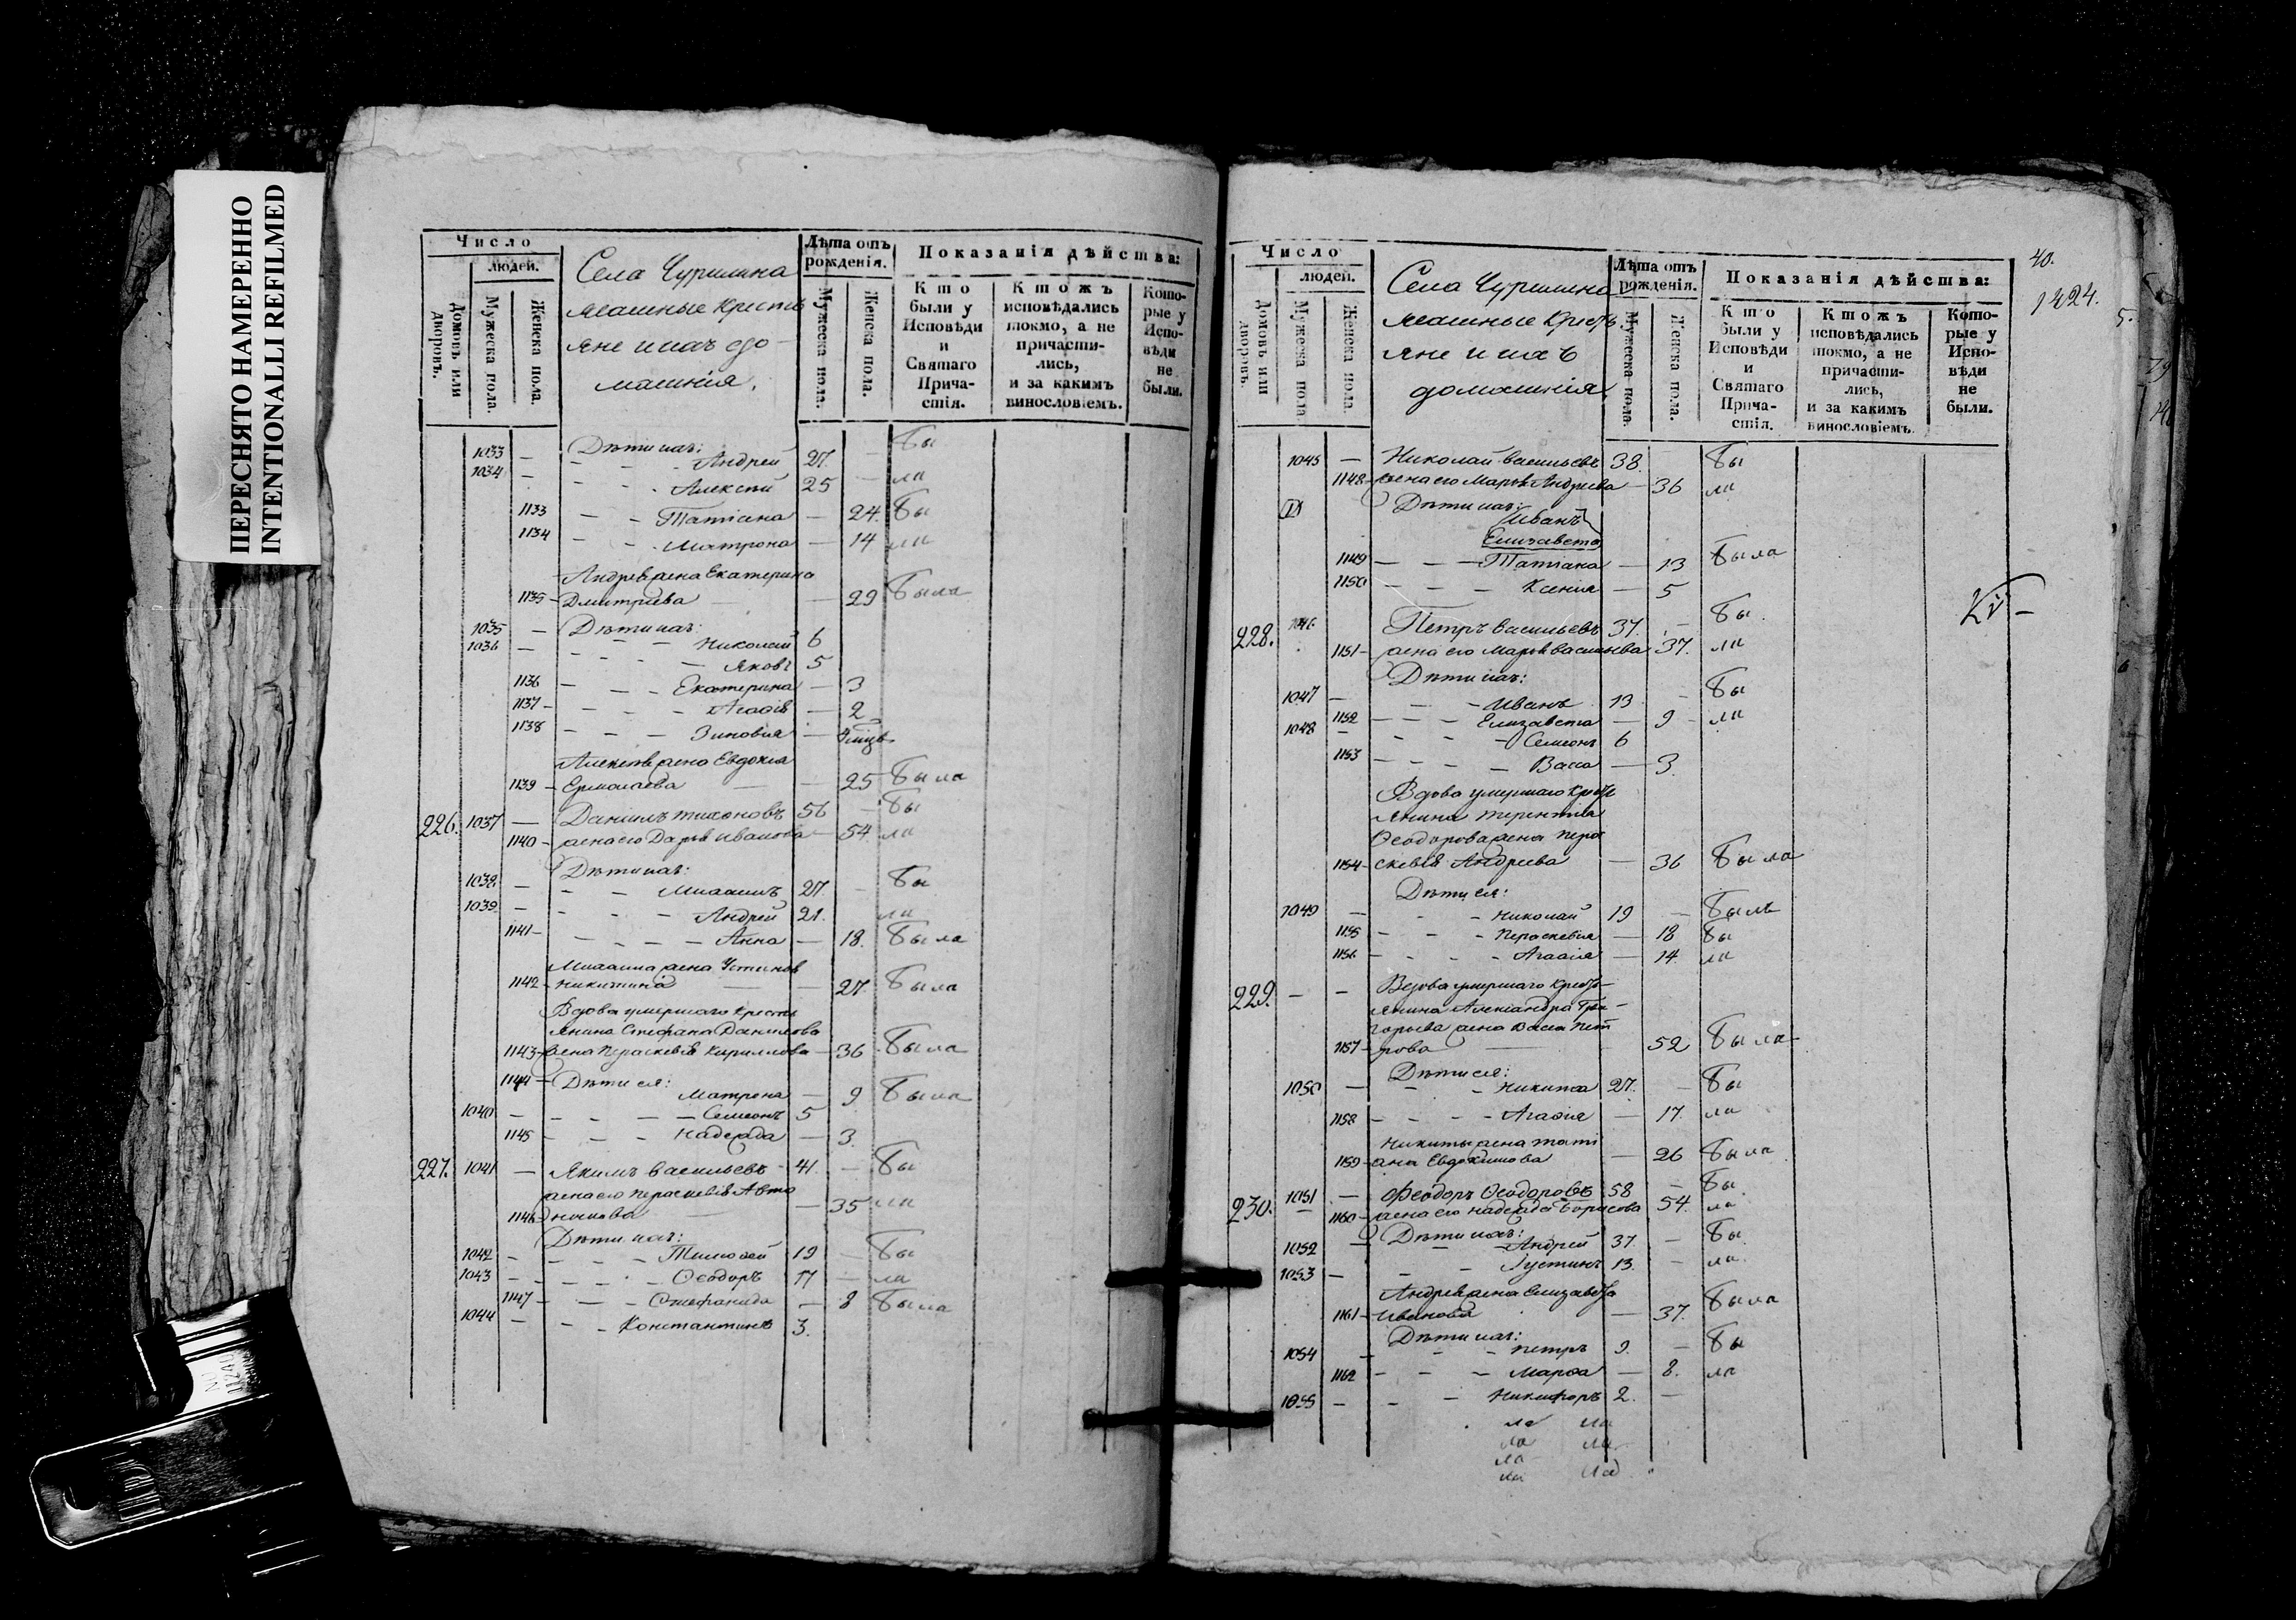 ПЕРЕСНЯТО НАМЕРЕННО
INTENTIONALLI REFILMED
Число
людей.
Домовъ или дворовъ.
Мужеска пола.
Женска пола.
Села Чурилина
яне ихъ до-
машнія.
Лѣта отъ рожденія.
Мужеска пола.
Женска пола.
Показанія дѣйства:
Кто были у Исповѣди и Святаго Прича-стія.
Ктожъ исповѣдались токмо, а не причасти-лись, и за какимъ винословіемъ.
Кото-рые у Испо-вѣди не были.
Дѣти ихъ:
1033 — Андрей 27. — Бы
1034 — Алексѣй 25 — ла
1133 — — Татіана — 24. Бы
1134 — — Матрона — 14 ла
Андреева жена Екатерина
1135 — Дмитріева — 29 Была
1035 — Дѣти ихъ:
Николай 6
1036 — Яковъ 5
1136 — — — Екатерина — 3
1137 — — — — Агафія — 2
1138 — — — — Зиновія —
жена Евдокія
1139 — Ермолаева — — 25 Была
226. 1037 — Даніилъ Тихоновъ 56 — Бы
1140 — жена его Дарья Иванова — 54. ла
Дѣти ихъ:
1038 — — — Михаилъ 27. — Бы
1039 — — — — Андрей 21. ла
1141 — — — — Анна — 18. Была
Михаила жена Устинья
1142 — Никитина — — 27. Была
Вдова умершаго кресть
янина Стефана Данилова
1143 — жена Параскевія Кириллова — 36 Была
1144 — Дѣти ея:
Матрена — 9 Была
1040 — — — — — Семеонъ 5
1145 — — — Надежда — 3.
227. 1041 — Якимъ Васильевъ — 41. — Бы
жена его Параскевія Авто
1146 номова — 35 ла
Дѣти ихъ:
1042 — — — — Тимофей 19 — Бы
1043 — — — — — Ѳеодоръ 17 — ла
1147 — — — Стефанида — 8 Была
1044 — — — Константинъ 3.
40.
1424.
Число
людей.
Домовъ или дворовъ.
Мужеска пола
Женска пола.
Села Чурилина
яне и ихъ
домашнія
Лѣта отъ рожденія.
Мужеска пола.
Женска пола.
Показанія дѣйства:
Кто были у Исповѣди и Святаго Прича-стія.
Ктожъ исповѣдались токмо, а не причасти-лись, и за какимъ винословіемъ.
Кото-рые у Испо-вѣди не были.
1045 — Николай Васильевъ 38. — Бы
1148 — жена его Марья Андреева — 36 ла
Дѣти ихъ:
Иванъ
Елизавета
1149 — — — Татіана — 13 Была
1150 — — — Ксенія — 5
228. 1046 Петръ Васильевъ 37. — Бы
1151 — жена его Марья Васильева 37. ла
Дѣти ихъ:
1047 — — Иванъ 13. — Бы
1152 — — — Елизавета — 9 — ла
1048 — — — — Семеонъ 6
1153 — — — — Васса — 3.
Вдова умершаго кресть
янина Терентія
Ѳеодорова жена Пара
1154 — скевія Андреева — 36 Была
Дѣти ея:
1049 — — — Николай 19 — Былъ
1155 — — — Параскевія — 18 Бы
1156 — — — — Агафія — 14. ла
229. — — Вдова умершаго кресть-
янина Александра Гри-
горьева жена Васса Пет
1157 — рова — 52 Была
Дѣти ея:
1050 — — — Никита 27. — Бы
1158 — — — — Агафія — 17. ла
Никиты жена Тати
1159 — ана Евдокимова — 26 Была
230. 1051 — Феодоръ Ѳеодоровъ 58 — Бы
1160 — жена его Надежда Борисова 54. ла
Дѣти ихъ:
1052 — — Андрей 37. — Бы
1053 — — — Густинъ 13. — ла
Андреева жена Елизавета
1161 — Иванова — 37. Была
Дѣти ихъ:
1054 — — — Петръ 9. — Бы
1162 — — — Марфа — 8. ла
1055 — — — Никифоръ 2. —
ла ла
ла ла
ла
ла